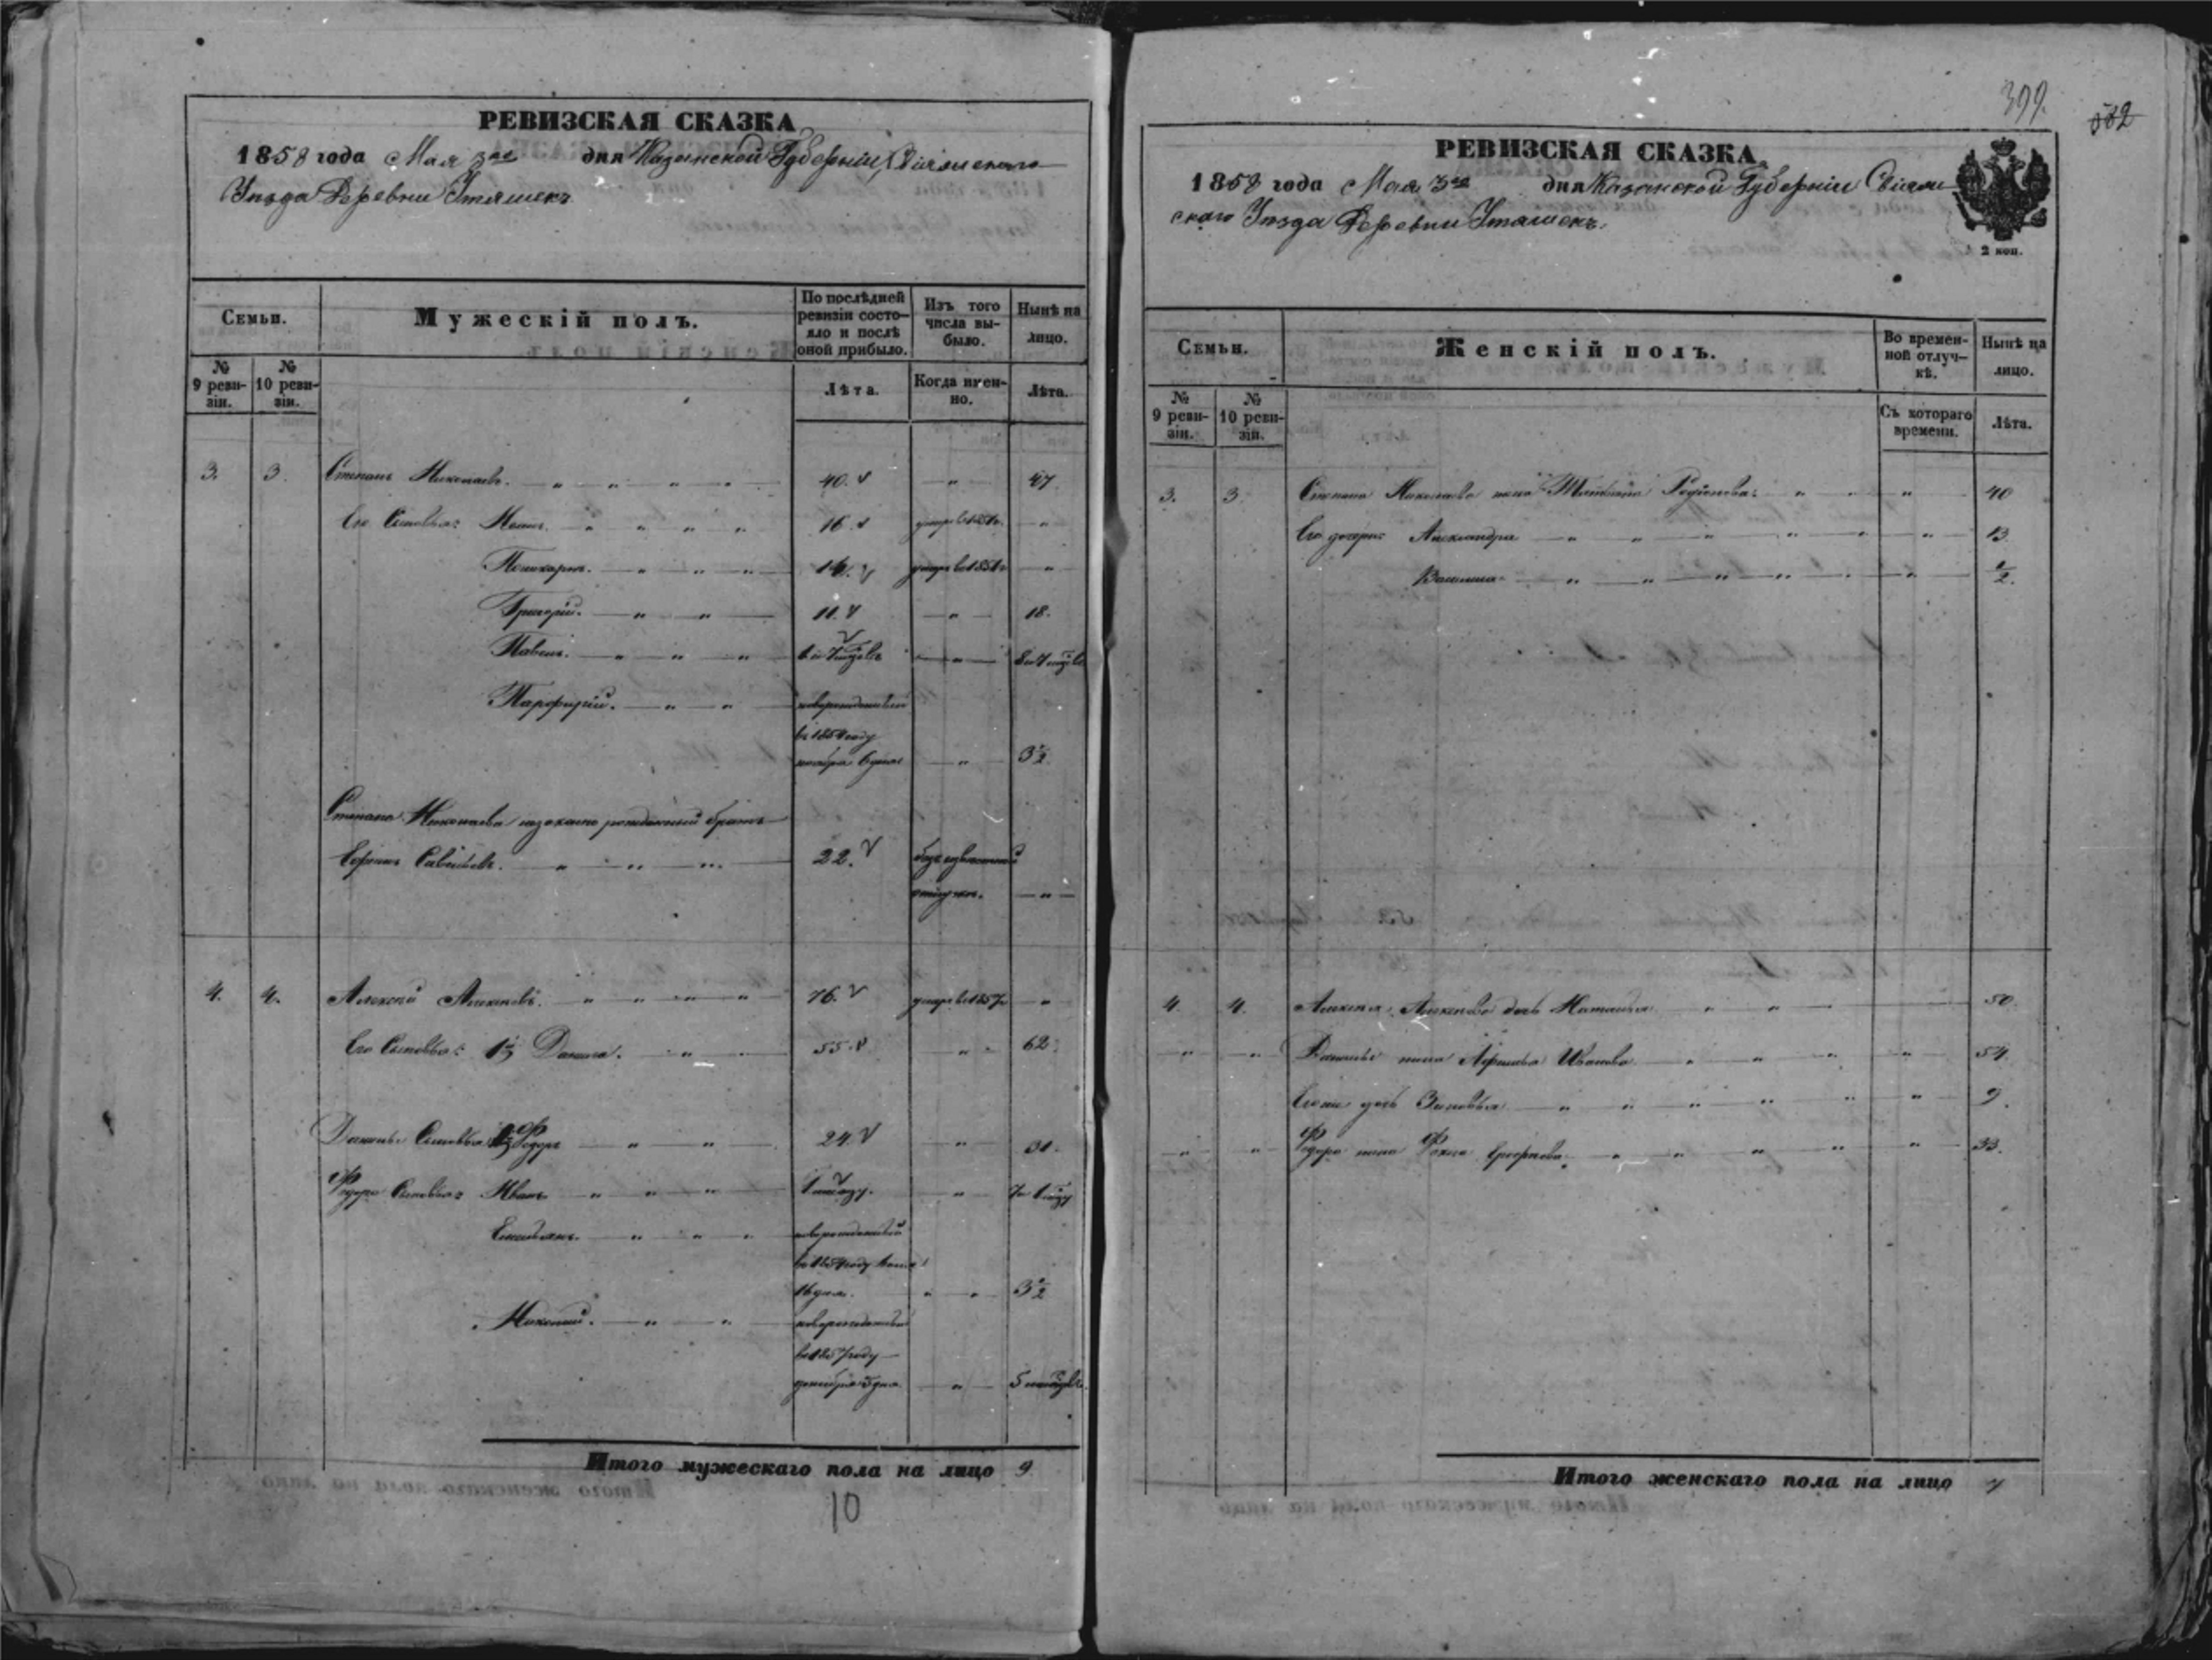 РЕВИЗСКАЯ СКАЗКА
1858 года Мая 3го дня Казанской Губерніи, Свіяжскаго
Уѣзда Деревни Утяшекъ
Семьи.
Мужескій полъ.
По послѣдней ревизіи состояло и послѣ оной прибыло.
Изъ того числа выбыло.
Нынѣ на лицо.
№ 9 ревизіи.
№ 10 ревизіи.
Лѣта.
Когда имен-но.
Лѣта.
3. 3. Степанъ Николаевъ. 40. 47.
Его Сыновья: 16. умеръ въ 1851г.
14. умеръ въ 1851г
Григорій. 11. 18.
Павелъ.
Парфирій. новорожденный
въ 1854 году
ноября 6 дня 3½
Степана Николаева рожденный братъ
Ефимъ Савельевъ. 22. безъизвестной
отлучкѣ.
4. 4. Алексей 76. умеръ в 1857г
Его Сыновья: 1й Данила. 55. 62.
Данилы Сыновья Федоръ 24 31.
Федора Сыновья: Иванъ
Емельянъ. новорожденный
въ 1854 году
16 дня. 3½
Николай. новорожденный
въ 1857 году
декабря 3 дня 5 месяцевъ
Итого мужескаго пола на лицо 9
10
399.
502
РЕВИЗСКАЯ СКАЗКА
1858 года Мая 3го дня Казанской Губерніи Свіяж
скаго Уѣзда Деревни Утяшекъ.
2 коп.
Семьи.
Женскій полъ.
Во временной отлуч-кѣ.
Нынѣ на лицо.
№ 9 ревизіи.
№ 10 ревизіи.
Съ котораго времени.
Лѣта.
3. 3. Степана Николаева жена Родіонова. 40
Его дочери: Александра 13.
½.
4. 4. Алексея дочь Наталья 50.
Данилы жена Афимья Иванова 54.
Его же дочь Зиновья 9.
Федора жена Фекла 33.
Итого женскаго пола на лицо 7